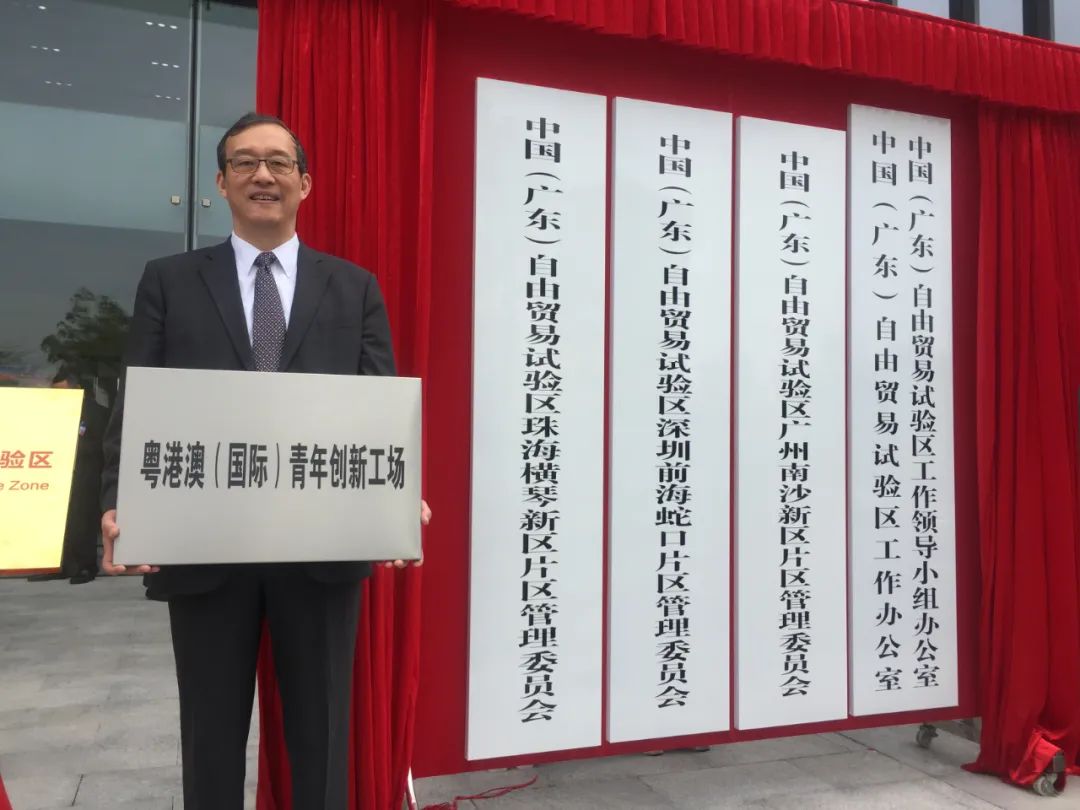 验区
e Zone
粤港澳（国际）青年创新工场
中国（广东）自由贸易试验区珠海横琴新区片区管理委员会
中国（广东）自由贸易试验区深圳前海蛇口片区管理委员会
中国（广东）自由贸易试验区广州南沙新区片区管理委员会
中国（广东）自由贸易试验区工作领导小组办公室
中国（广东）自由贸易试验区工作办公室